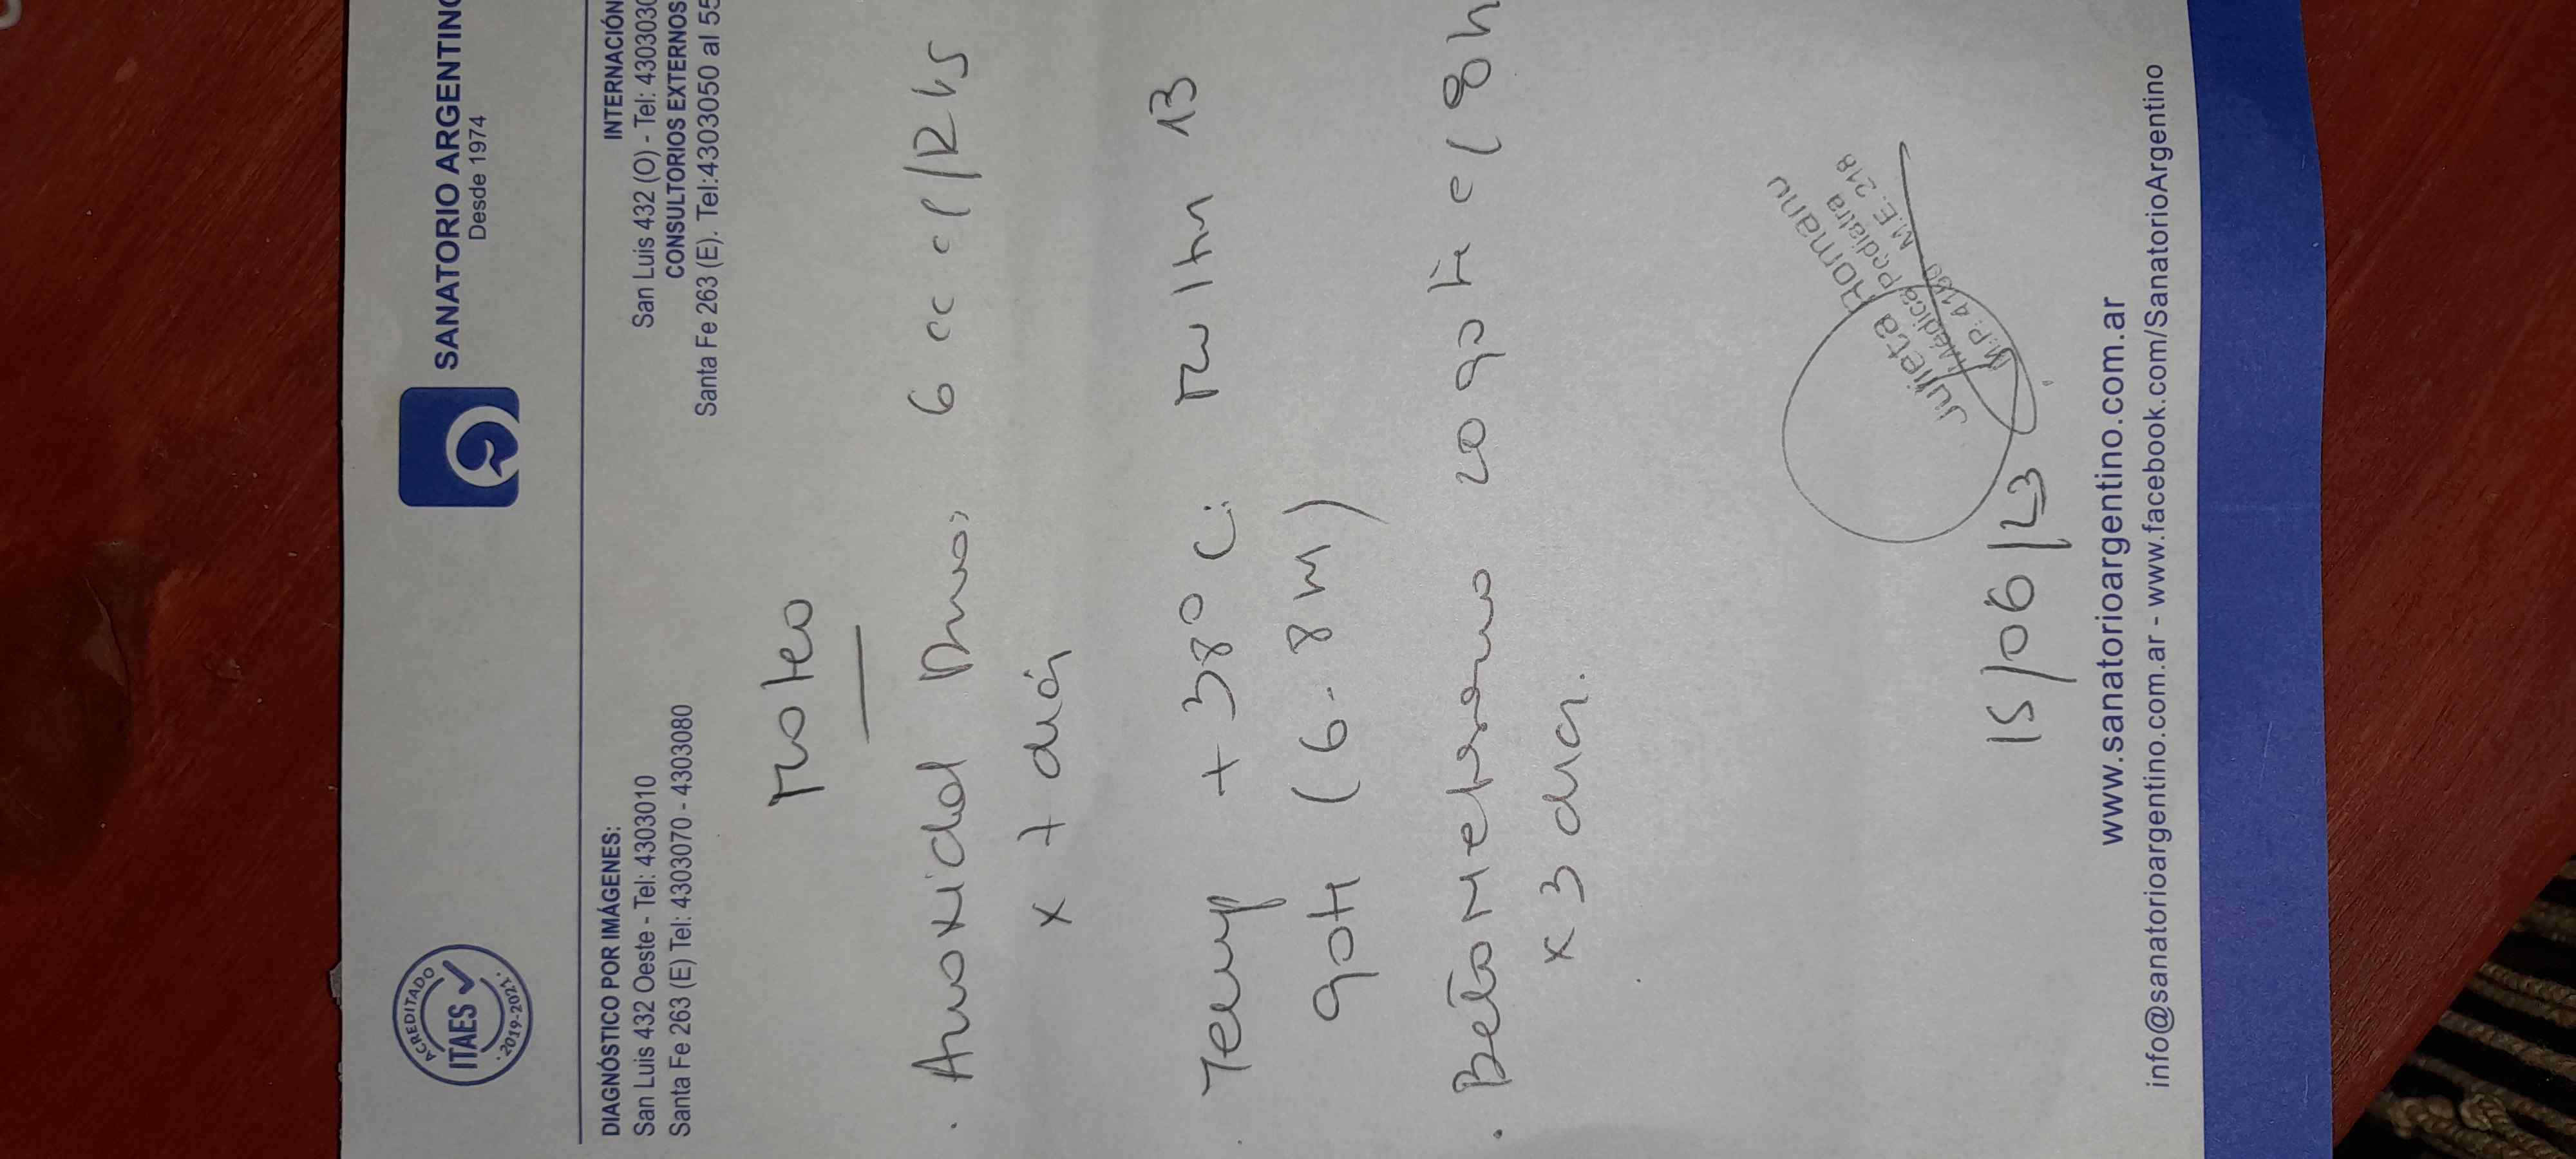 ACREDITADO
ITAES
2019-2021
SANATORIO ARGENTINO
Desde 1974
DIAGNÓSTICO POR IMÁGENES:
San Luis 432 Oeste - Tel: 4303010
Santa Fe 263 (E) Tel: 4303070 - 4303080
INTERNACIÓN
San Luis 432 (O) - Tel: 4303030
CONSULTORIOS EXTERNOS
Santa Fe 263 (E). Tel:4303050 al 55
Mateo
. Amoxidal 6 cc c/12 hs
x 7 días
. Temp +38° C:
(6-8 h)
. Betametasona 20 gotas c/8h
x 3 días.
Julieta Romano
Médica Pediatra
M.E. 218
15/06/23
www.sanatorioargentino.com.ar
info@sanatorioargentino.com.ar - www.facebook.com/SanatorioArgentino